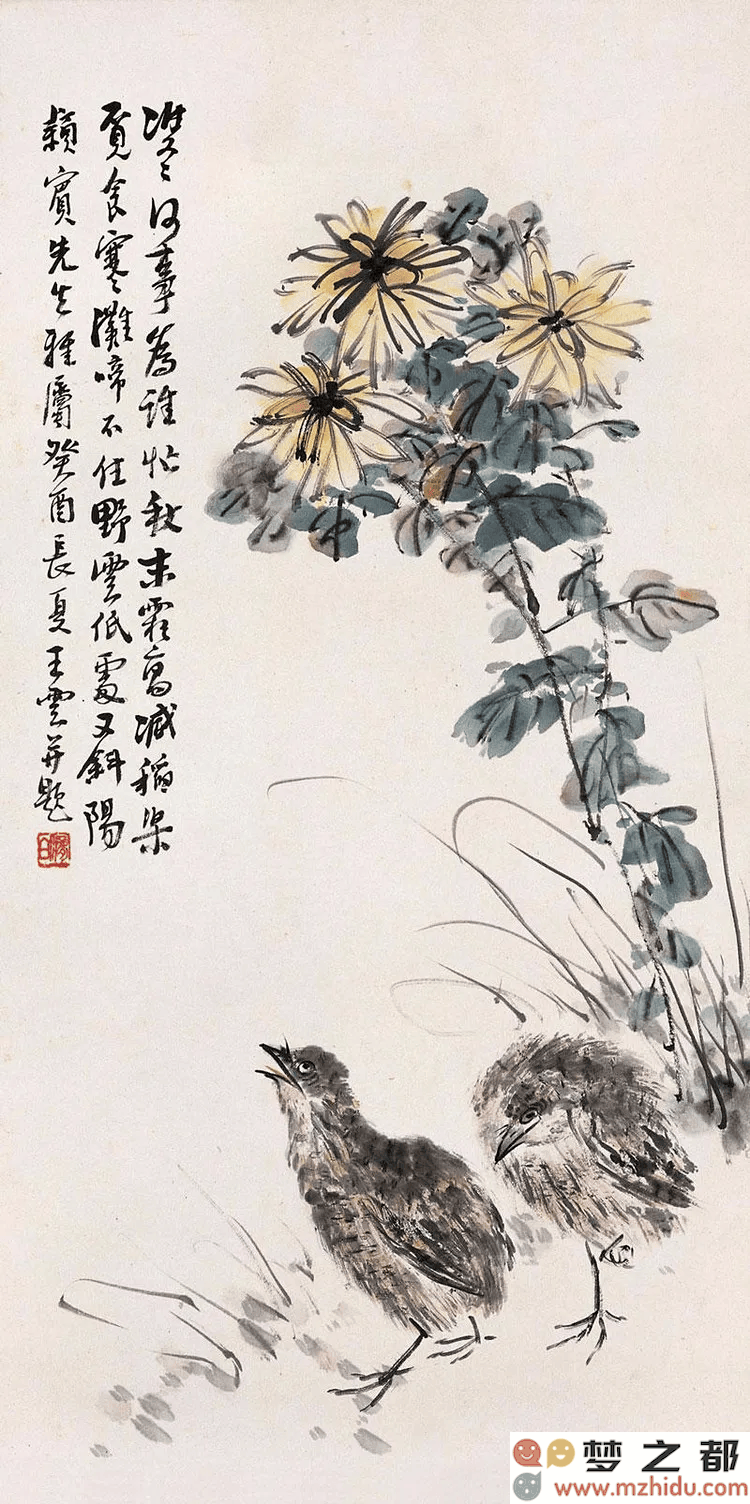 双〻何事為誰忙秋末霜高减稻粱
覓食寒灘啼不住野雲低處又斜陽
蘋賓先生雅屬癸酉長夏王雲并題
梦之都
www.mzhidu.com